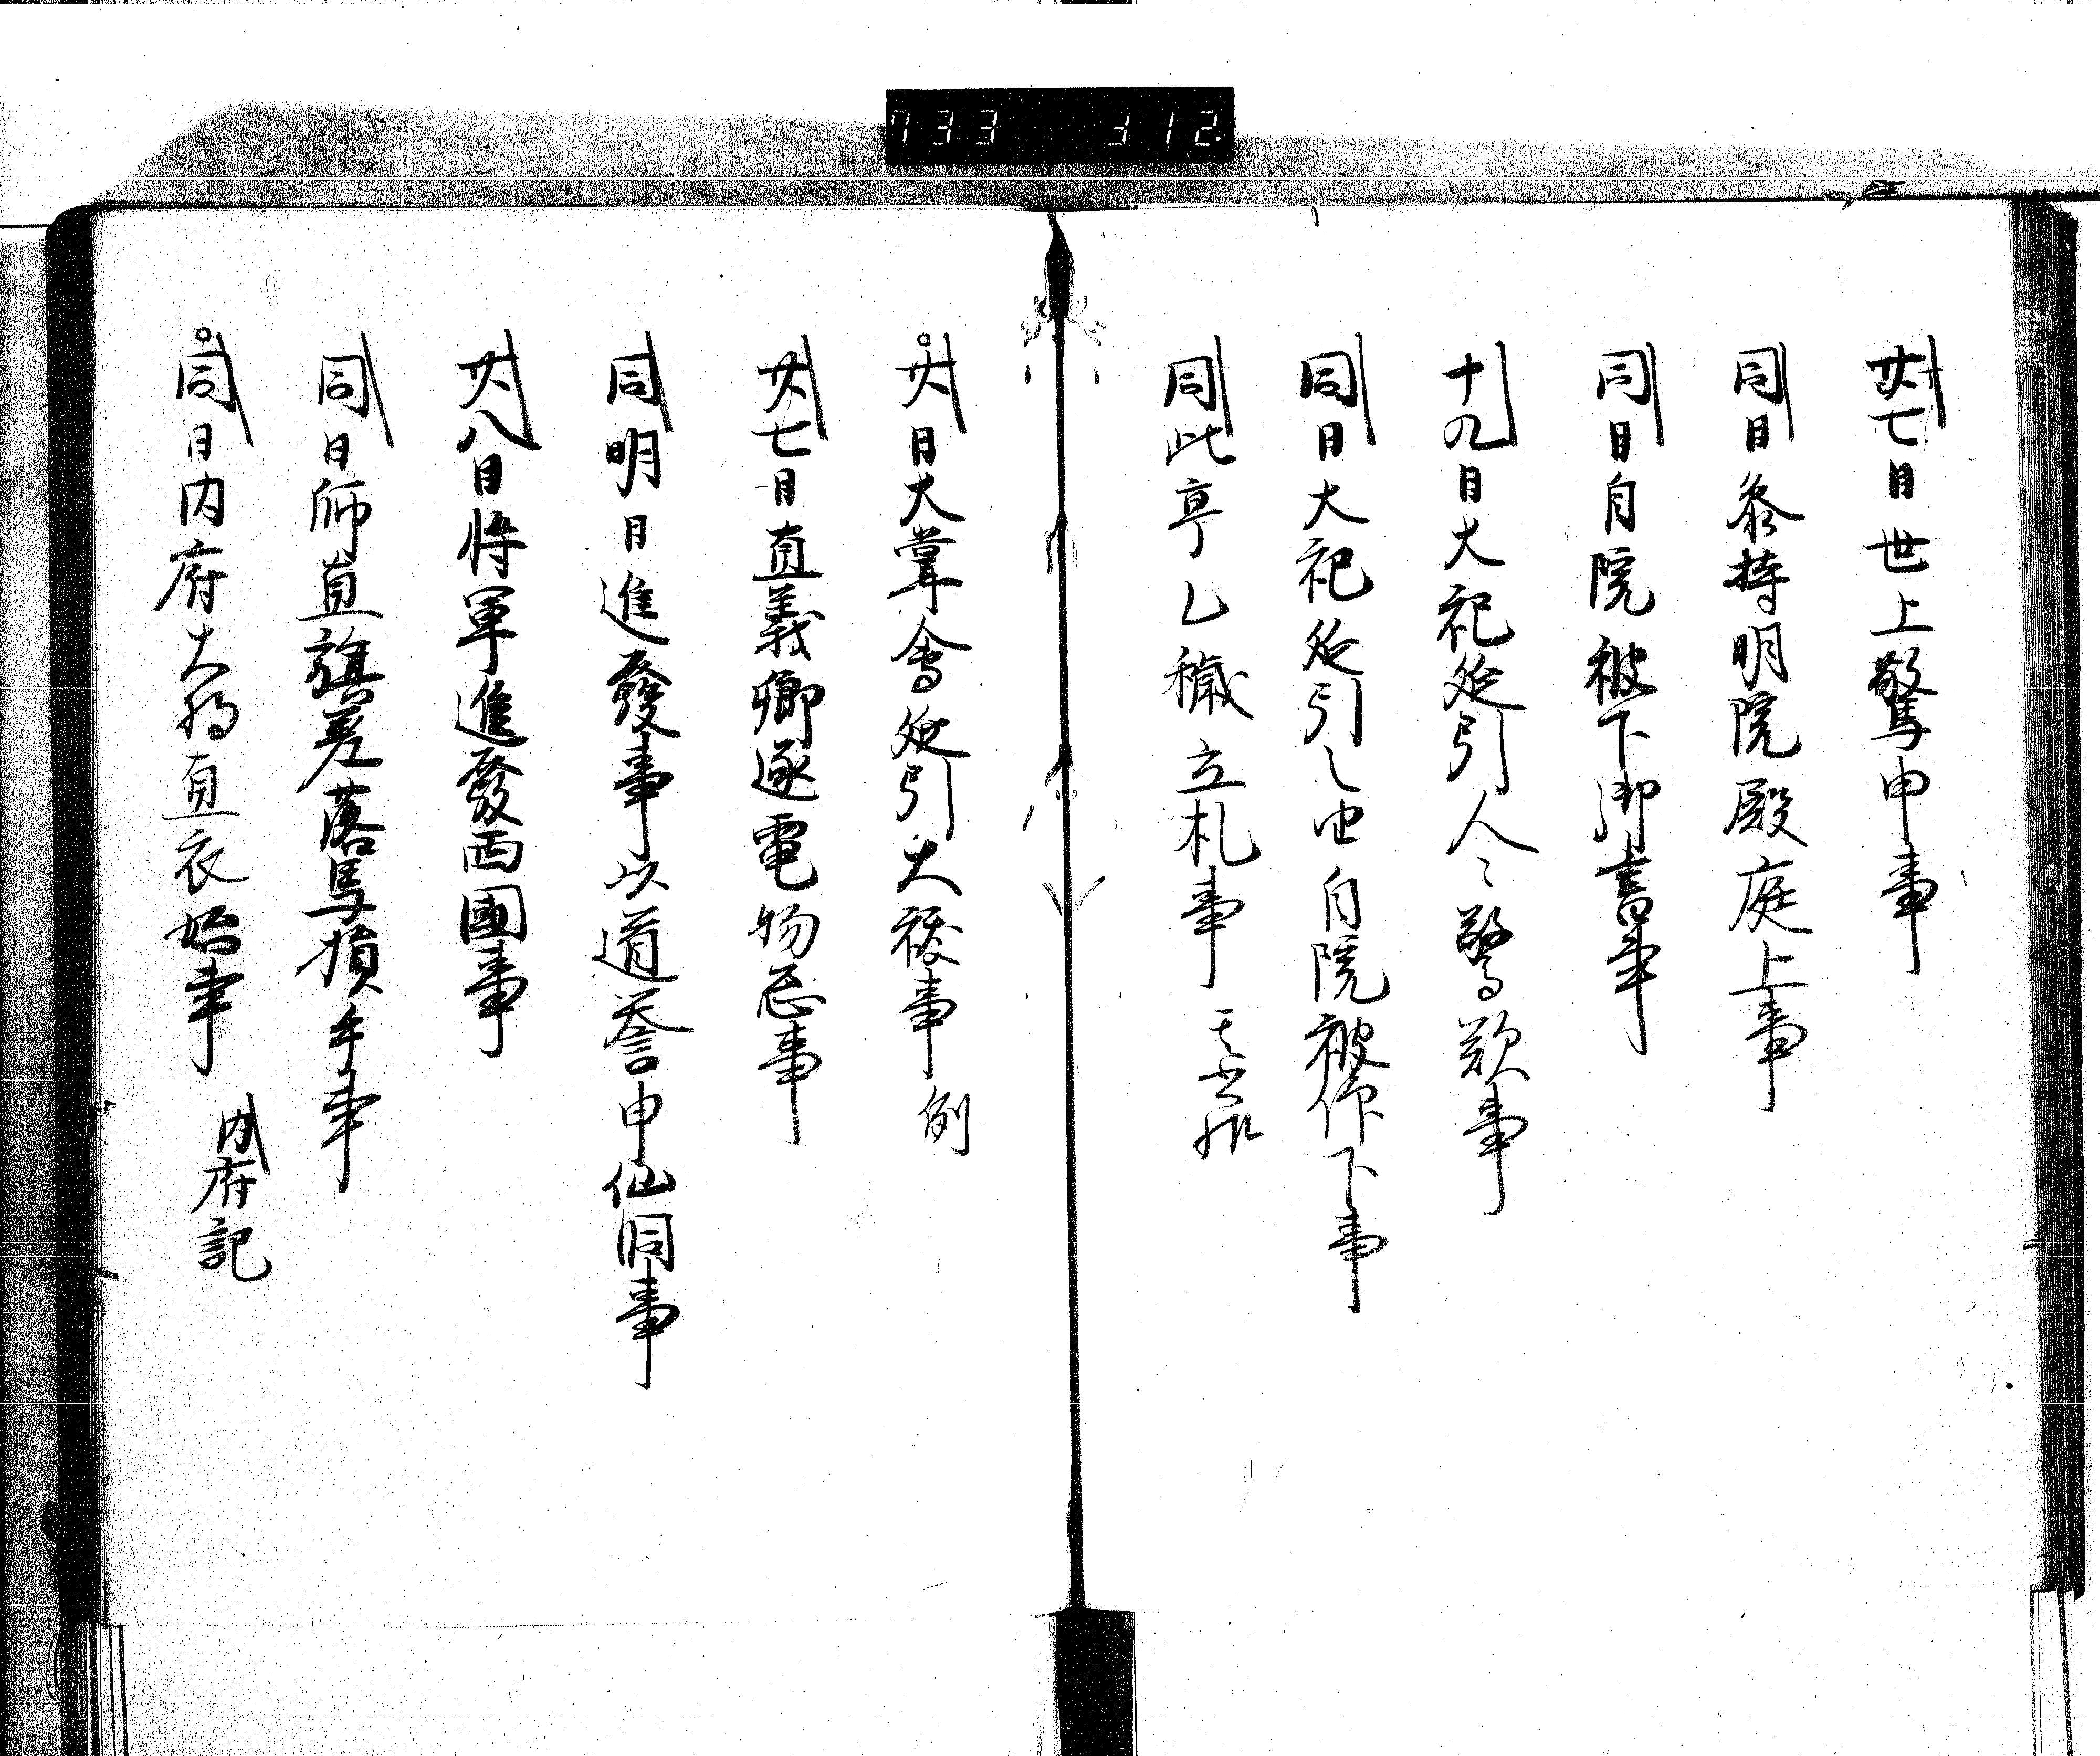 733 312
廿七日世上驚申事
同日参持明院殿庭上事
同日自院被下御書事
十九日大祀延引人々驚歎事
同日大祀延引之由自院被仰下事
同此亭乙穢立札事
廿日大嘗会延引大祓事 例
廿七日直義卿逐電物忩事
同明日進發事以道誉申仙洞事
廿八日将軍進發西國事
同日師直旗差落馬損手事
同日内府大将直衣始事 内府記